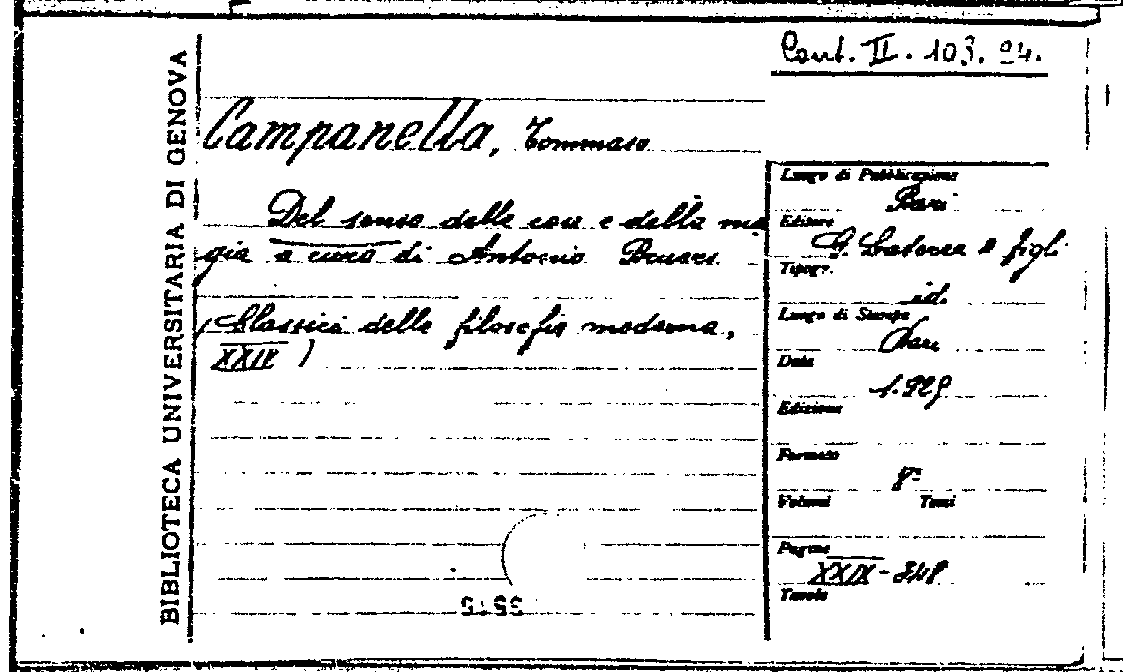 Cont. II. 103. 24.
BIBLIOTECA UNIVERSITARIA DI GENOVA
Campanella, Tommaso
Del senso delle cose e della ma
gia a cura di Antonio Bruers
(Classici della filosofia moderna,
XXIX)
Luogo di Pubblicazione
Bari
Editore
G. Laterza & figli
Tipogr.
id.
Luogo di Stampa
Bari
Data
1.925
Edizione
Formato
8º
Volumi Tomi
Pagine
XXIX - 348
Tavole